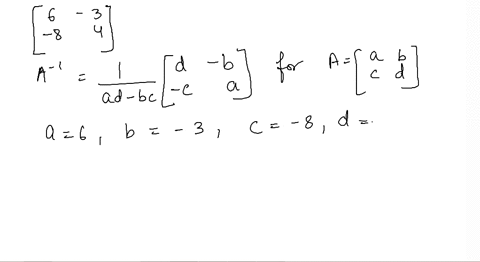 [6 -3
-8 4]
A⁻¹ = 1/(ad-bc) [d -b
-c a] for A = [a b
c d]
a = 6 , b = -3 , c = -8 , d =